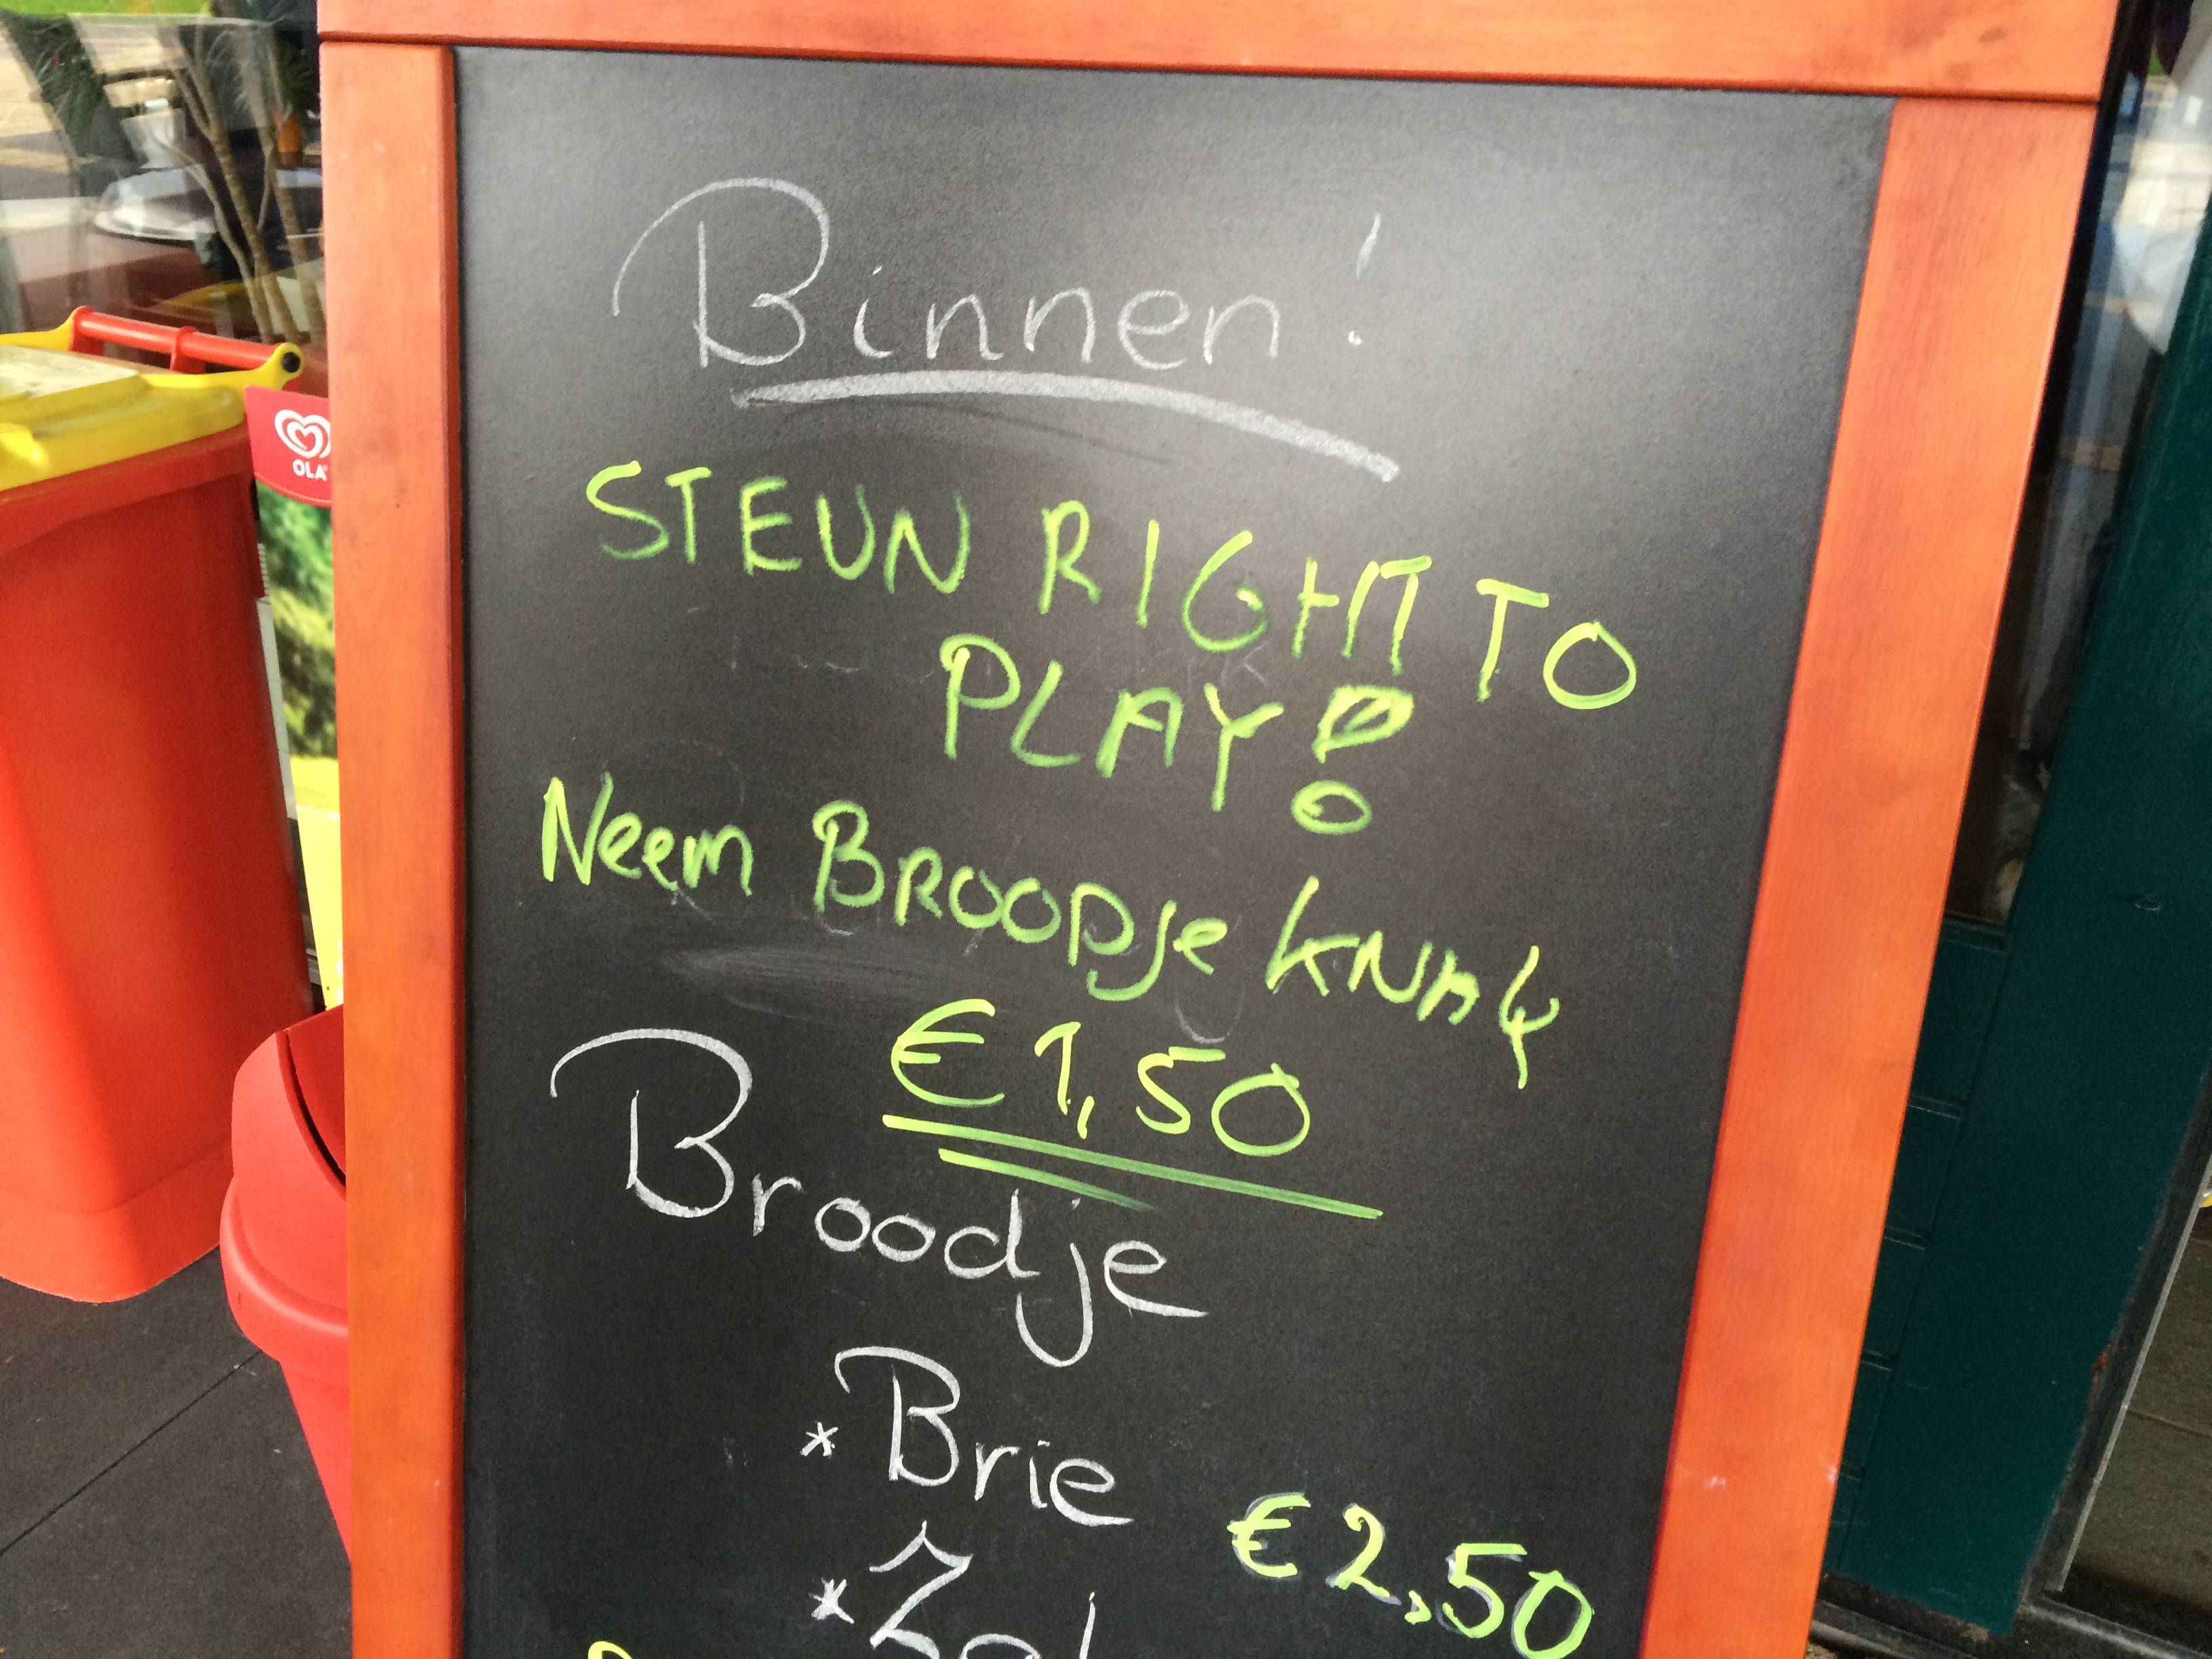 Binnen!
STEUN RIGHT TO
PLAY!
Neem BROODje KNAK
€1,50
Broodje
* Brie
€2,50
*
OLA